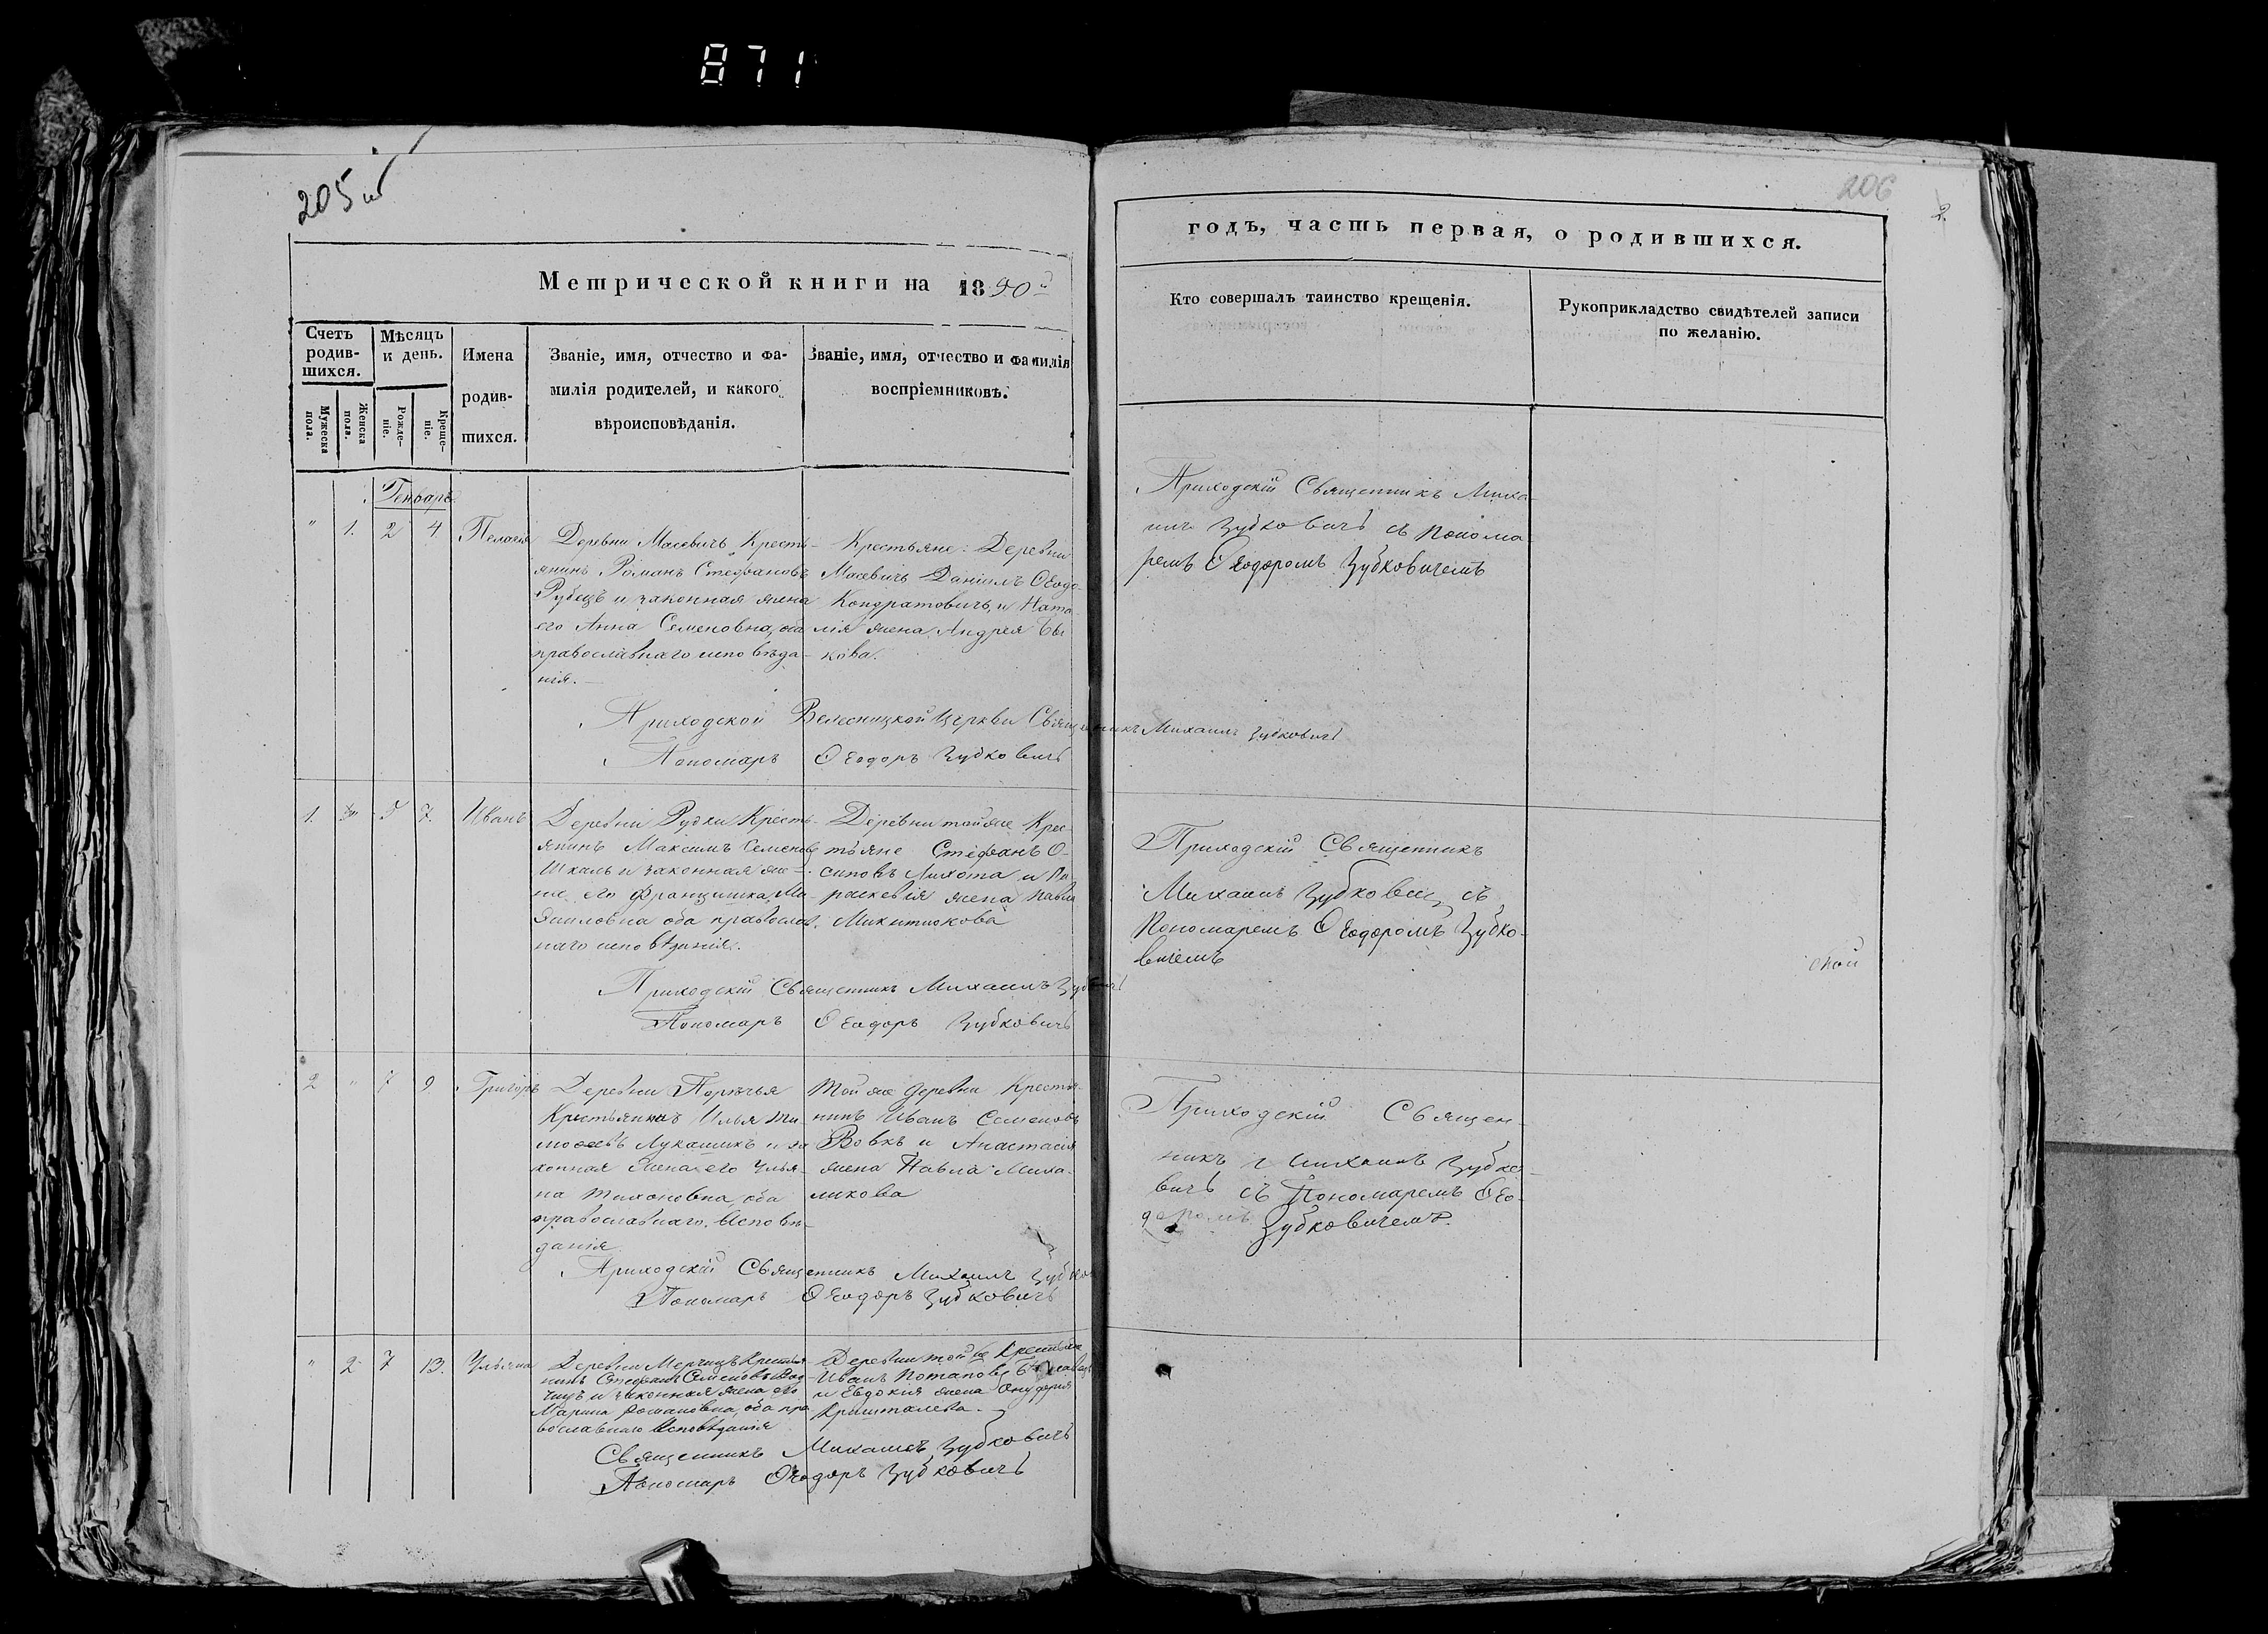 871
205
Метрической книги на 18
Счетъ родив-шихся.
Мѣсяцъ и день.
Имена родив-шихся.
Званіе, имя, отчество и фа-
милія родителей, и какого
вѣроисповѣданія.
Званіе, имя, отчество и фамилія
воспріемниковъ.
Мужеска пола.
Женска пола.
Рожде-ніе.
Креще-ніе.
Генварь
" 1. 2 4 Пелагія
Деревни Масевичъ Кресть-
янинъ Романъ Стефановъ
Рубецъ и законная жена
его Анна Семеновна, оба
православнаго исповѣда-
нія.
Крестьяне: Деревни
Масевичъ Даніилъ Ѳеодо-
Кондратовичъ, и Ната-
лія жена Андрея Бы
кова.
Приходской Велесницкой Церкви Священникъ Михаилъ Зубковичъ
Пономарь Ѳеодоръ Зубковичъ
1. " 5 7. Иванъ
Деревни Рудки Кресть-
янинъ Максимъ Семеновъ
Шкаль и законная же-
на его Францишка Ми-
хаиловна оба православ-
наго исповѣданія.
Деревни тойже Крес-
тьяне Стефанъ О-
сиповъ Лихота и Па-
раскевія жена Павла
Микитюкова
Приходскій Священникъ Михаилъ
Пономарь Ѳеодоръ Зубковичъ
2 " 7 9 Григоръ
Деревни Порѣчья
Крестьянинъ Илья Ти-
моѳеевъ Лукашикъ и за
конная жена его Улья-
на Тихоновна оба
православнаго Исповѣ-
данія
Той же деревни Крестья-
нинъ Иванъ Семеновъ
Вовкъ и Анастасія
жена Павла Миха-
ликова
Приходскій Священникъ Михаилъ
Пономарь Ѳеодоръ Зубковичъ
" 2 7 13. Ульяна
Деревни Мерчицъ Крестья
нинъ Стефанъ Семеновъ
и законная жена его
Марина Романовна, оба пра
вославнаго Исповѣданія
Деревни той же Крестьяне
Иванъ Потаповъ
и Евдокія жена
Кришталева.
Священникъ Михаилъ Зубковичъ
Пономарь Ѳеодоръ Зубковичъ
206
2
годъ, часть первая, о родившихся.
Кто совершалъ таинство крещенія.
Рукоприкладство свидѣтелей записи
по желанію.
Приходскій Священникъ Миха-
илъ Зубковичъ съ Понома-
ремъ Ѳеодоромъ Зубковичемъ
Приходскій Священникъ
Михаилъ Зубкович съ
Пономаремъ Ѳеодоромъ Зубко-
вичемъ
Приходскій Священ-
никъ Михаилъ Зубко-
вичъ съ Пономаремъ Ѳео-
доромъ Зубковичемъ.